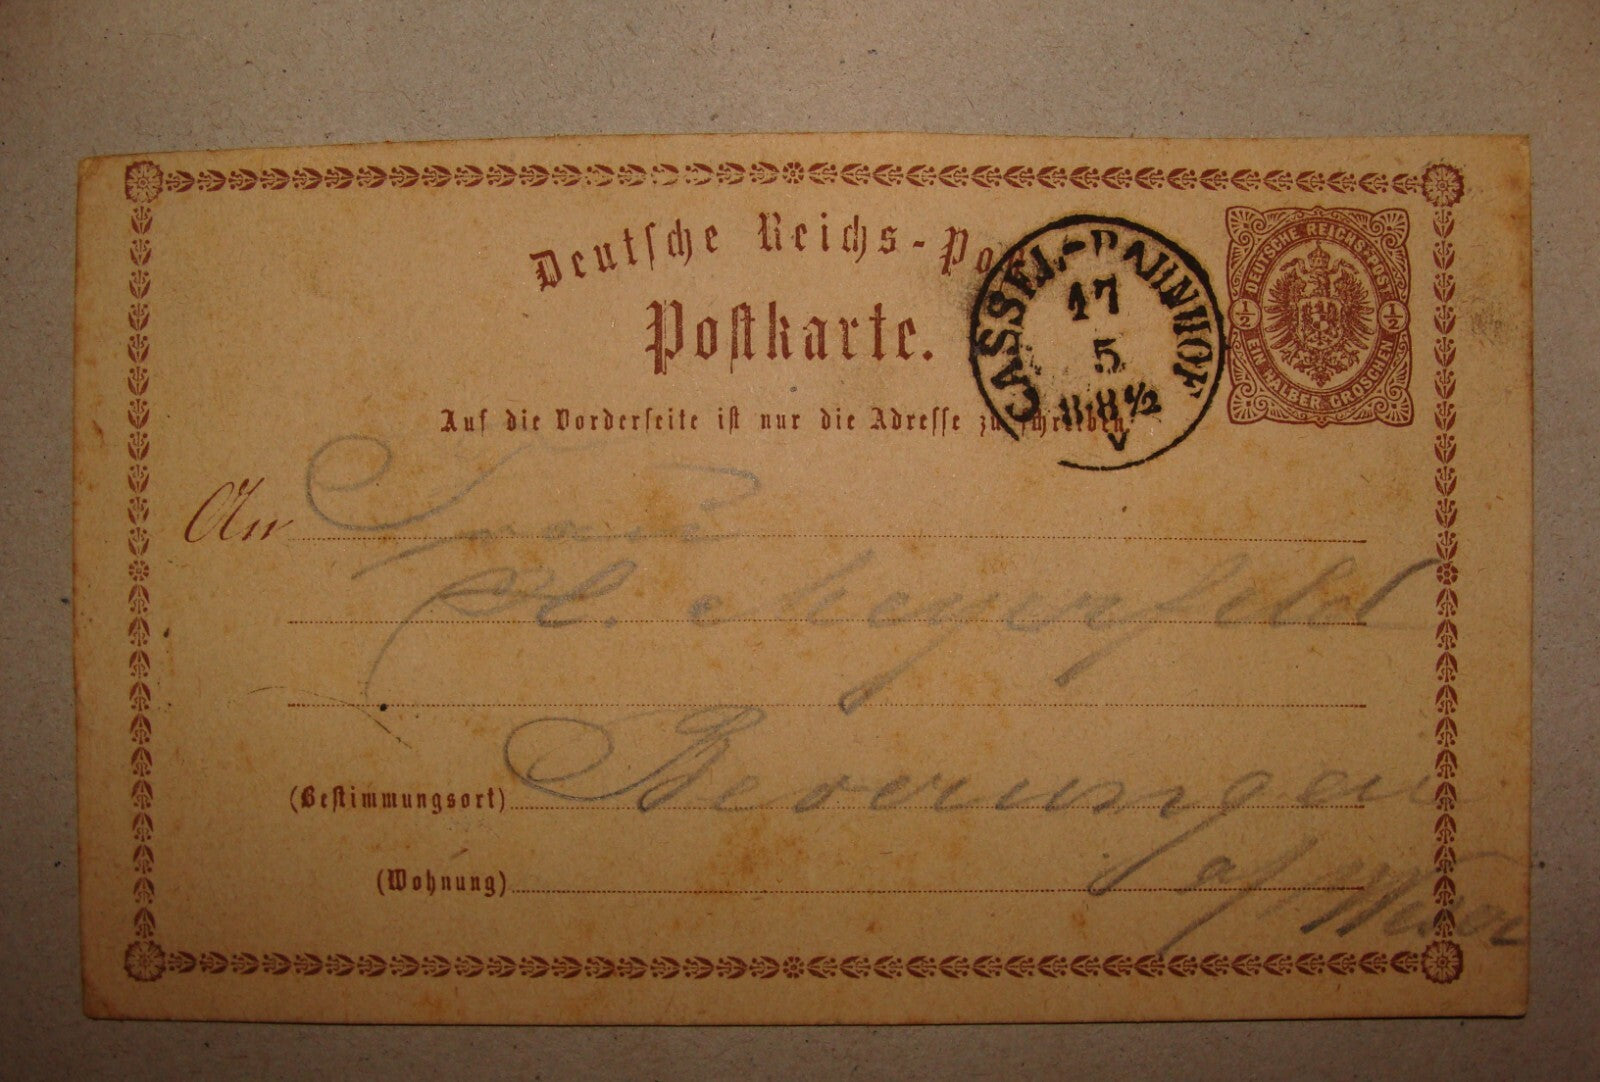 Deutsche Reichs-Post
Postkarte.
CASSEL-BAHNHOF
17
5
8-8½
V
DEUTSCHE REICHS-POST
½ ½
EIN HALBER GROSCHEN
Auf die Vorderseite ist nur die Adresse zu schreiben.
An Frau
Meyerfeld
(Bestimmungsort) Beverungen
(Wohnung) a/Weser